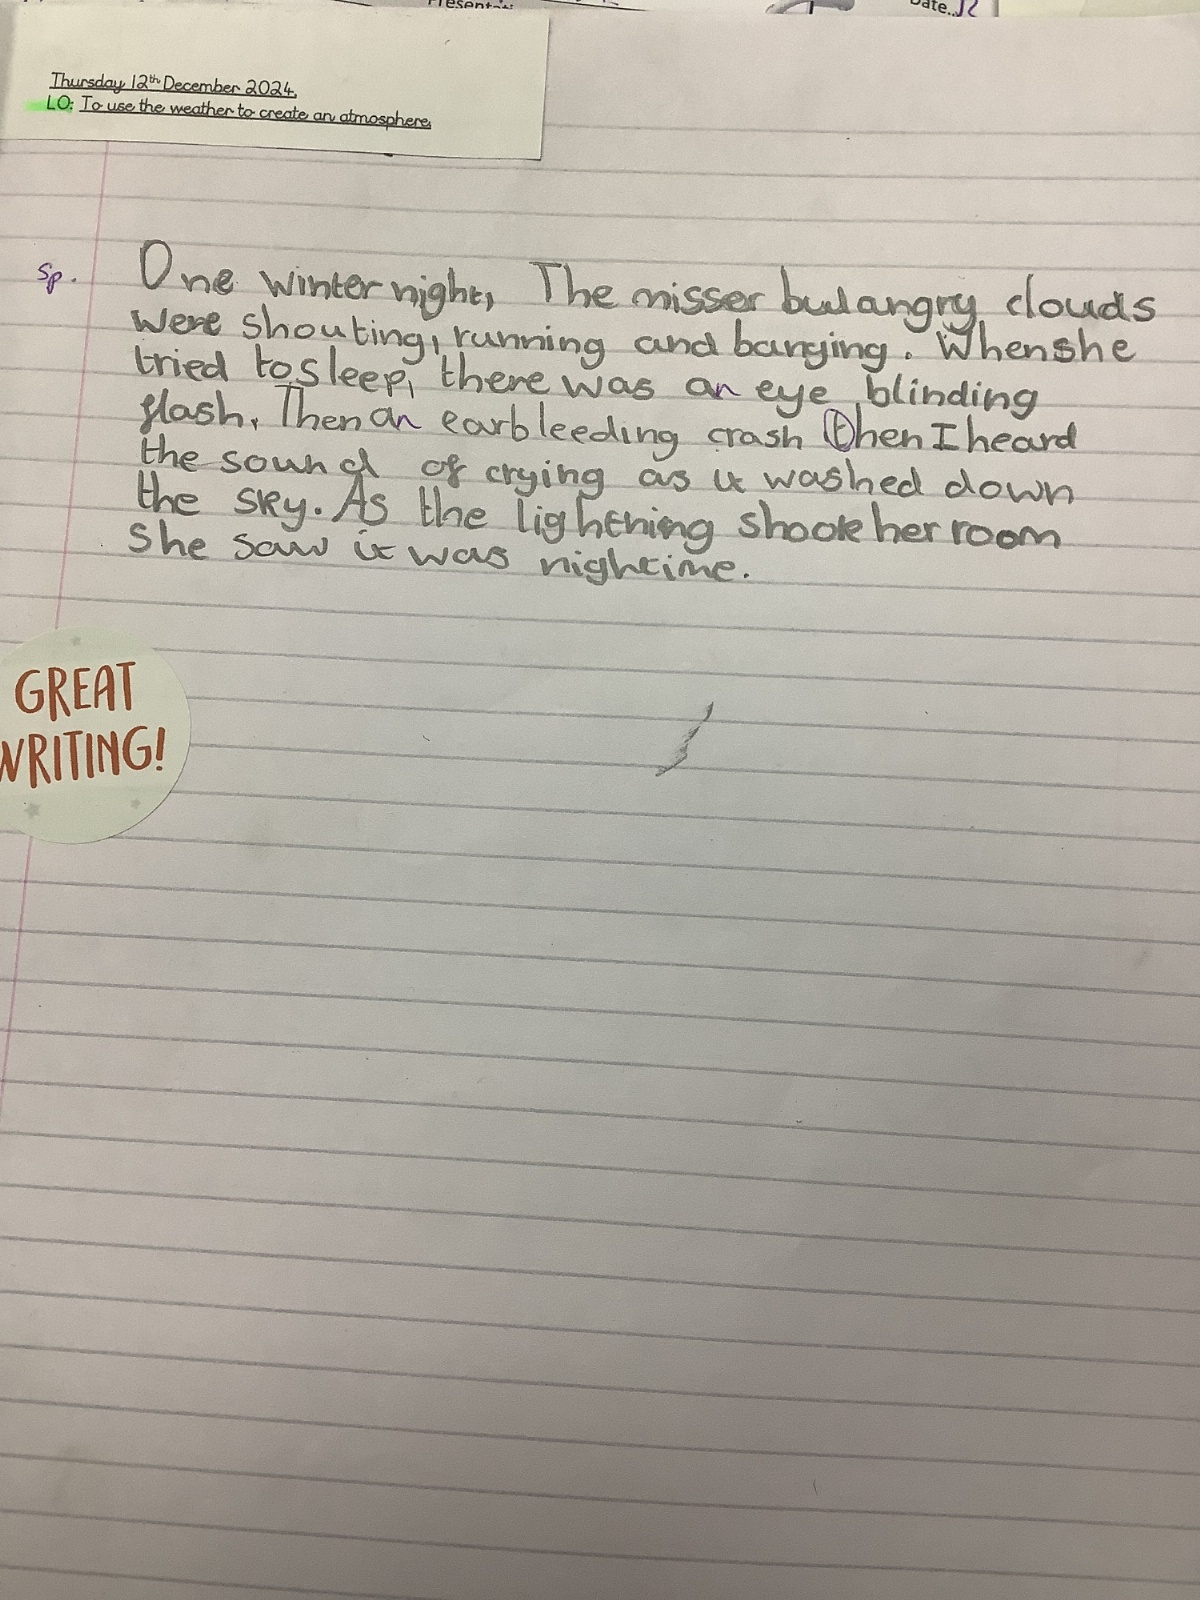 Date..12
Thursday 12th December 2024.
LO: To use the weather to create an atmosphere.
Sp.
One winter night, The misser bulangry clouds
were shouting, running and banging. When she
tried to sleep, there was an eye blinding
flash. Then an earbleeding crash then I heard
the sound of crying as it washed down
the sky. As the lightening shook her room
she saw it was nightime.
GREAT
WRITING!